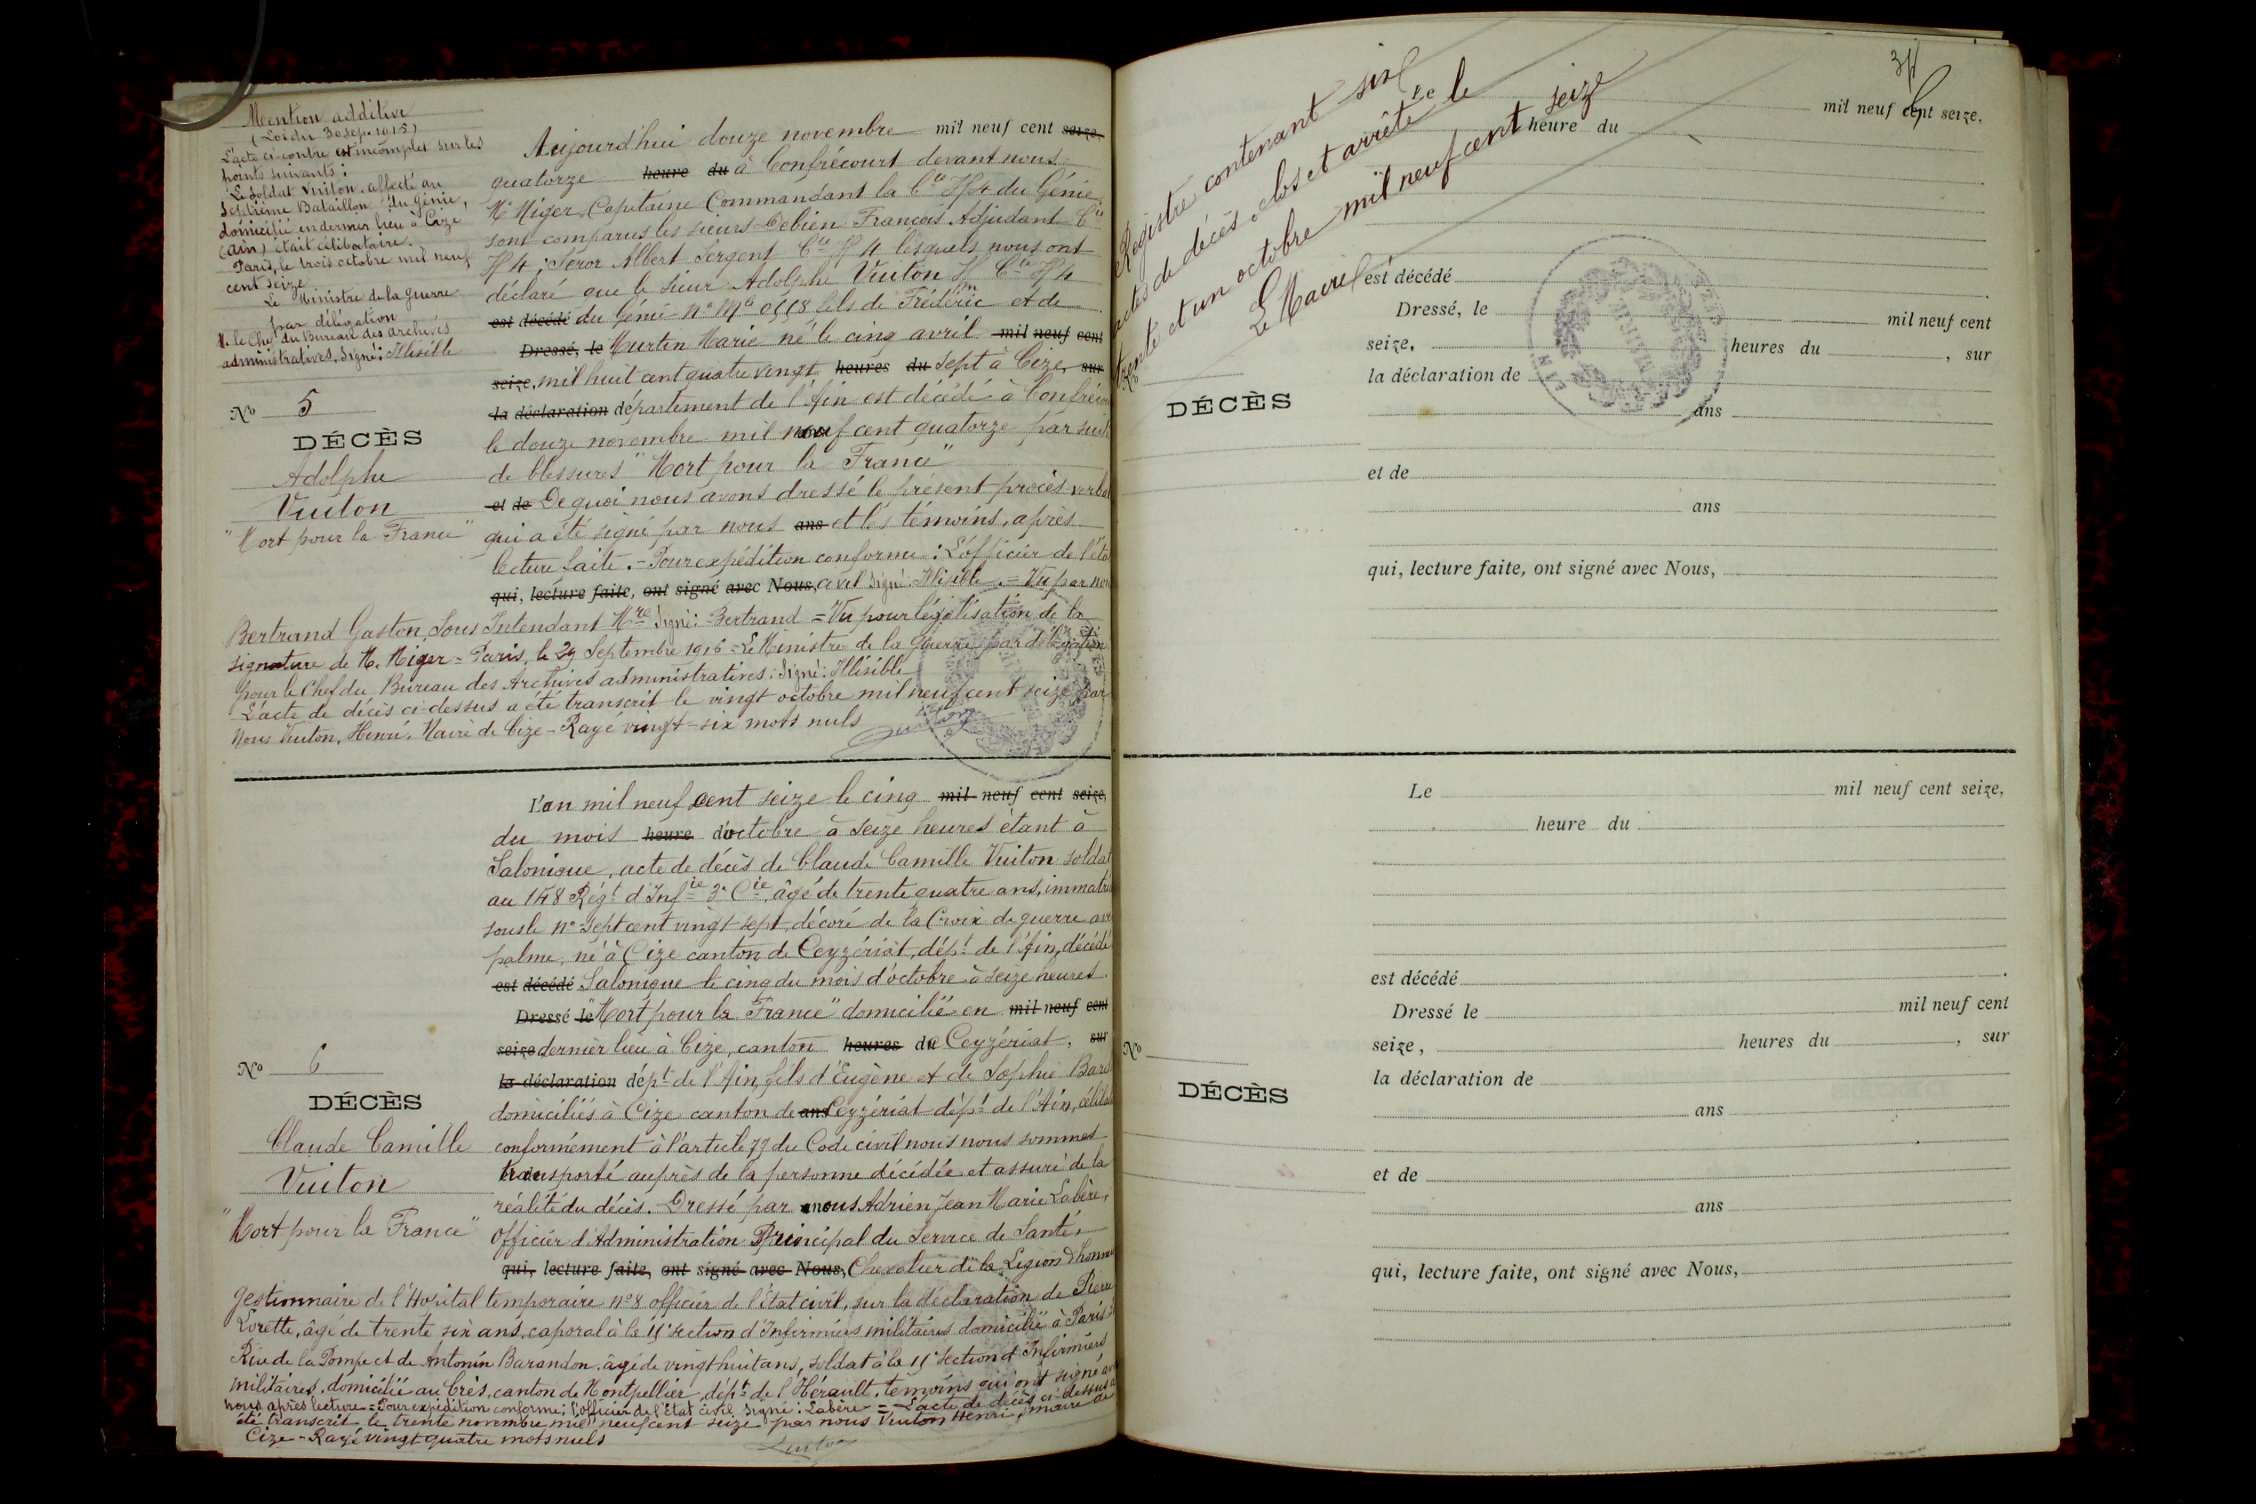 Mention additive
(Loi du 30 sep. 1915)
L'acte ci-contre est incomplet sur les
points suivants :
Le soldat Vuiton, affecté au
Septième Bataillon du Génie,
domicilié en dernier lieu à Cize
(Ain) était célibataire.
Paris, le trois octobre mil neuf
cent seize
Le Ministre de la Guerre
par délégation
P. le Chef du Bureau des archives
administratives, Signé : Illisible
No 5
DÉCÈS
Adolphe
Vuiton
"Mort pour la France"
Aujourd'hui douze novembre mil neuf cent seize,
quatorze heure du à Confrécourt devant nous
Mr Niger, Capitaine Commandant la Cie 4 du Génie
sont comparus les sieurs Debien François Adjudant Cie
4 ; Seror Albert Sergent Cie 4 lesquels nous ont
déclaré que le sieur Adolphe Vuiton Cie 4
est décédé du Génie No Mle fils de Frédéric et de
Dressé, le Murtin Marie né le cinq avril mil neuf cent
seize, mil huit cent quatre vingt heures du sept à Cize, sur
la déclaration département de l'Ain est décédé à
le douze novembre mil neuf cent quatorze par suite
de blessures "Mort pour la France"
et de De quoi nous avons dressé le présent procès verbal
qui a été signé par nous ans et les témoins, après
lecture faite. = Pour expédition conforme : L'officier de l'état
qui, lecture faite, ont signé avec Nous, civil signé Illisible = Vu par nous
Bertrand Gaston, Sous Intendant Mre Signé : Bertrand = Vu pour légalisation de la
signature de M. Niger = Paris, le 29 Septembre 1916 = Le Ministre de la Guerre, par délégation
Pour le Chef du Bureau des Archives administratives : Signé : Illisible
L'acte de décès ci-dessus a été transcrit le vingt octobre mil neuf cent seize par
Nous Vuiton, Henri, Maire de Cize - Rayé vingt-six mots nuls
Vuiton
No 6
DÉCÈS
Claude Camille
Vuiton
"Mort pour la France"
L'an mil neuf cent seize le cinq mil neuf cent seize,
du mois heure d'octobre à seize heures étant à
Salonique, acte de décès de Claude Camille Vuiton soldat
au 148 Régt d'Infie 3e Cie, âgé de trente quatre ans, immatri
sous le no sept cent vingt sept, décoré de la Croix de guerre avec
palme, né à Cize canton de Ceyzériat, dépt de l'Ain, décédé
est décédé Salonique le cinq du mois d'octobre à seize heures
Dressé le "Mort pour la France" domicilié en mil neuf cent
seize dernier lieu à Cize, canton heures de Ceyzériat, sur
la déclaration dépt de l'Ain, fils d'Eugène et de Sophie
domiciliés à Cize canton de ans Ceyzériat dépt de l'Ain,
conformément à l'article 77 du Code civil nous nous sommes
transporté auprès de la personne décédée et assuré de la
réalité du décès. Dressé par nous Adrien Jean Marie Labère,
Officier d'Administration Principal du Service de Santé,
qui, lecture faite, ont signé avec Nous, Chevalier de la Légion d'honneur
gestionnaire de l'Hopital temporaire no 8 officier de l'état civil, sur la déclaration de Pierre
Lorette, âgé de trente six ans, caporal à la section d'Infirmiers militaires domicilié à Paris
Rue de la Pompe et de Antonin Barandon, âgé de vingt huit ans, soldat à la section d'Infirmiers
militaires, domicilié au Crès, canton de Montpellier, dépt de l'Hérault, témoins qui ont signé avec
nous après lecture = Pour expédition conforme ; l'officier de l'État civil Signé : Labère = L'acte de décès ci-dessus a
été transcrit le trente novembre mil neuf cent seize par nous Vuiton Henri, maire de
Cize - Rayé vingt quatre mots nuls
Vuiton
Registre contenant six
actes de décès, clos et arrêté le
trente et un octobre mil neuf cent seize
Le Maire
Le mil neuf cent seize,
heure du
est décédé
Dressé, le mil neuf cent
seize, heures du , sur
la déclaration de
ans
et de
ans
qui, lecture faite, ont signé avec Nous,
DÉCÈS
Le mil neuf cent seize,
heure du
est décédé
Dressé le mil neuf cent
seize, heures du , sur
la déclaration de
ans
et de
ans
qui, lecture faite, ont signé avec Nous,
No
DÉCÈS